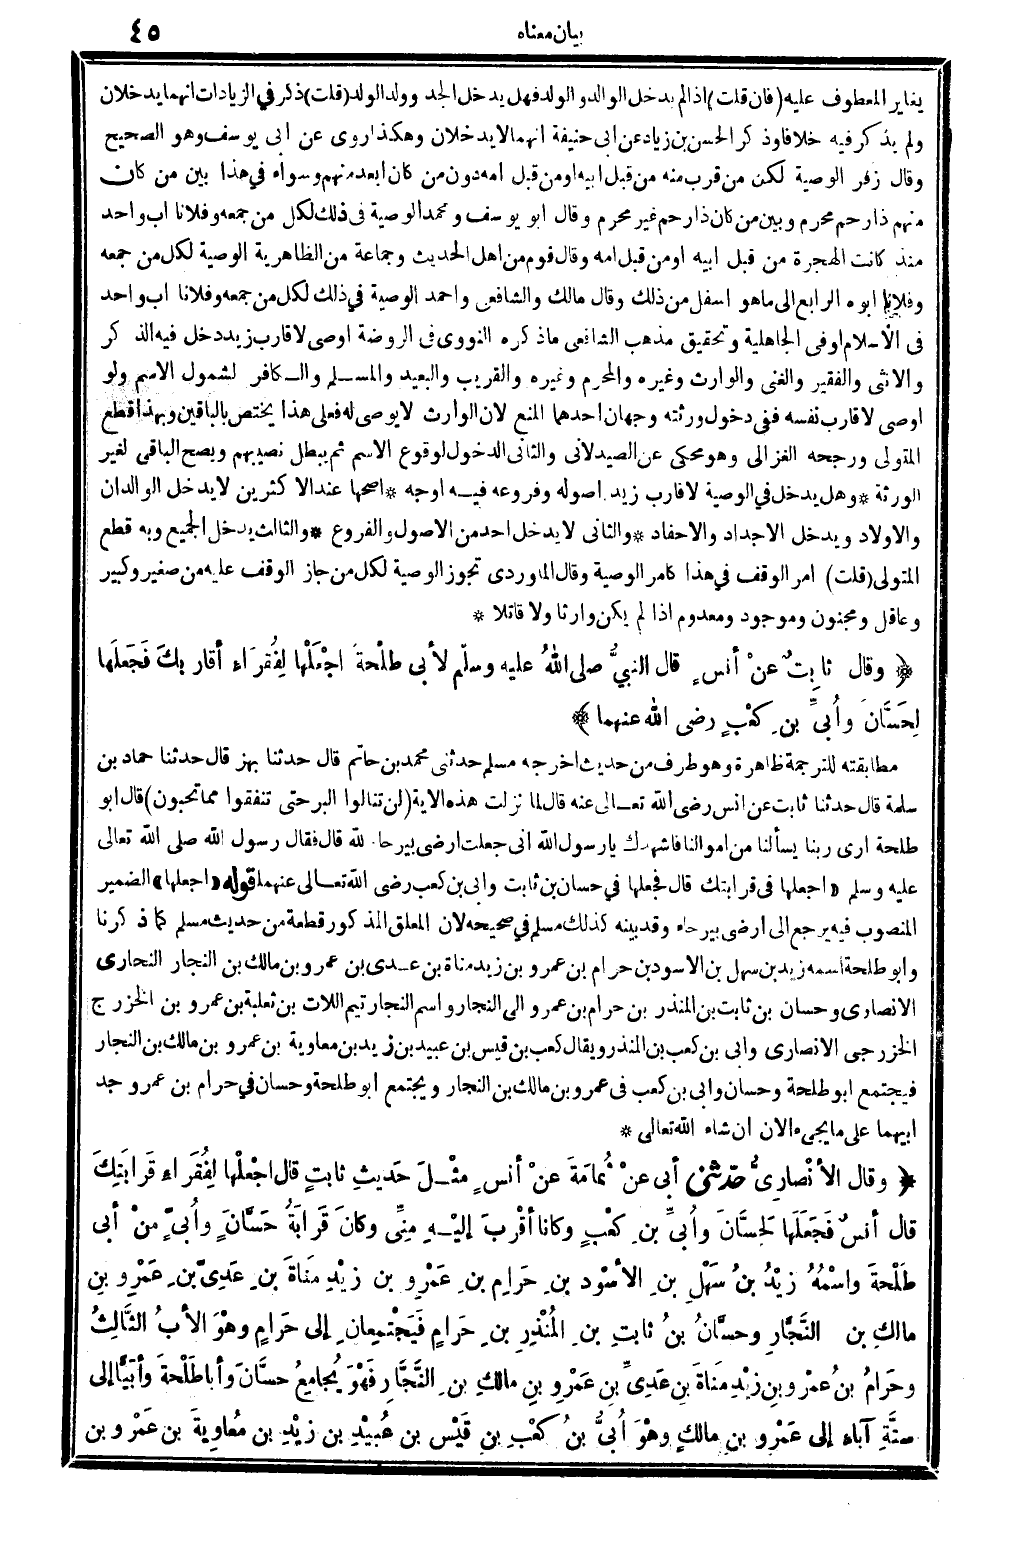 بيان معناه
٤٥
يغاير المعطوف عليه (فان قلت) اذا لم يدخل الوالد والولد فهل يدخل الجد وولد الولد (قلت) ذكر في الزيادات انهما يدخلان
ولم يذكر فيه خلافا وذكر الحسن بن زياد عن ابى حنيفة انهما لا يدخلان وهكذا روى عن ابى يوسف وهو الصحيح
وقال زفر الوصية لكن من قرب منه من قبل ابيه او من قبل امه دون من كان ابعد منهم وسواء في هذا بين من كان
منهم ذا رحم محرم وبين من كان ذا رحم غير محرم وقال ابو يوسف ومحمد الوصية فى ذلك لكل من جمعه وفلانا اب واحد
منذ كانت الهجرة من قبل ابيه او من قبل امه وقال قوم من اهل الحديث وجماعة من الظاهرية الوصية لكل من جمعه
وفلانا ابوه الرابع الى ما هو اسفل من ذلك وقال مالك والشافعى واحمد الوصية في ذلك لكل من جمعه وفلانا اب واحد
فى الاسلام او فى الجاهلية وتحقيق مذهب الشافعى ما ذكره النووى فى الروضة اوصى لاقارب زيد دخل فيه الذكر
والانثى والفقير والغنى والوارث وغيره والمحرم وغيره والقريب والبعيد والمسلم والكافر لشمول الاسم ولو
اوصى لاقارب نفسه ففى دخول ورثته وجهان احدهما المنع لان الوارث لا يوصى له فعلى هذا يختص بالباقين وبهذا قطع
المتولى ورجحه الغزالى وهو محكى عن الصيدلانى والثانى الدخول لوقوع الاسم ثم يبطل نصيبهم ويصح الباقى لغير
الورثة * وهل يدخل في الوصية لاقارب زيد اصوله وفروعه فيه اوجه * اصحها عند الاكثرين لا يدخل الوالدان
والاولاد ويدخل الاجداد والاحفاد * والثانى لا يدخل احد من الاصول والفروع * والثالث يدخل الجميع وبه قطع
المتولى (قلت) امر الوقف في هذا كامر الوصية وقال الماوردى تجوز الوصية لكل من جاز الوقف عليه من صغير وكبير
وعاقل ومجنون وموجود ومعدوم اذا لم يكن وارثا ولا قاتلا *
﴿ وقال ثابِتٌ عنْ أنسٍ قال النبيُّ صلى اللهُ عليه وسلّم لأبى طلْحةَ اجْعَلْها لِفُقرَاءِ أقاربِكَ فَجَعَلَها
لِحَسَّانَ وأُبىِّ بنِ كعْبٍ رضى الله عنهما ﴾
مطابقته للترجمة ظاهرة وهو طرف من حديث اخرجه مسلم حدثنى محمد بن حاتم قال حدثنا بهز قال حدثنا حماد بن
سلمة قال حدثنا ثابت عن انس رضى الله تعالى عنه قال لما نزلت هذه الاية (لن تنالوا البر حتى تنفقوا مما تحبون) قال ابو
طلحة ارى ربنا يسألنا من اموالنا فاشهدك يا رسول الله انى جعلت ارضى بيرحا لله قال فقال رسول الله صلى الله تعالى
عليه وسلم «اجعلها فى قرابتك قال فجعلها في حسان بن ثابت وابى بن كعب رضى الله تعالى عنهما قوله «اجعلها» الضمير
المنصوب فيه يرجع الى ارضى بيرحاء وقد بينه كذلك مسلم في صحيحه لان المعلق المذكور قطعة من حديث مسلم كما ذكرنا
وابو طلحة اسمه زيد بن سهل بن الاسود بن حرام بن عمرو بن زيد مناة بن عدى بن عمرو بن مالك بن النجار النجارى
الانصارى وحسان بن ثابت بن المنذر بن حرام بن عمرو الى النجار واسم النجار تيم اللات بن ثعلبة بن عمرو بن الخزرج
الخزرجى الانصارى وابى بن كعب بن المنذر ويقال كعب بن قيس بن عبيد بن زيد بن معاوية بن عمرو بن مالك بن النجار
فيجتمع ابو طلحة وحسان وابى بن كعب فى عمرو بن مالك بن النجار ويجتمع ابو طلحة وحسان في حرام بن عمرو جد
ابيهما على ما يجىء الان ان شاء الله تعالى *
﴿ وقال الأنْصارىُّ حدّثنى أبى عنْ ثُمامَةَ عنْ أنسٍ مثْلَ حَديثِ ثابتٍ قال اجْعلْها لِفُقَرَاءِ قَرَابَتِكَ
قال أنسٌ فَجَعَلَها لحِسَّانَ وأُبىِّ بنِ كعْبٍ وكانا أقْرَبَ إليْهِ مِنِّى وكانَ قَرَابَةُ حَسَّانَ وأُبىٍّ منْ أبى
طَلْحَةَ واسْمُهُ زَيْدُ بنُ سَهْلِ بنِ الأسْوَدِ بنِ حَرَامِ بنِ عَمْرِو بن زيْدِ مَناةَ بنِ عَدِىِّ بنِ عَمْرِو بنِ
مالكِ بن النَّجَّارِ وحسَّانُ بنُ ثابتِ بنِ المُنْذِرِ بنِ حَرَامٍ فَيَجْتَمِعانِ إلى حَرَامٍ وهْوَ الأبُ الثَّالِثُ
وحَرَامُ بنُ عمْرِو بنِ زيْدِ مَناةَ بنِ عَدِىِّ بنِ عَمْرِو بنِ مالكِ بنِ النَّجَّارِ فَهْوَ يُجامِعُ حسَّانَ وأبا طَلْحةَ وأُبيًّا إلى
ستَّةِ آباءٍ إلى عَمْرِو بنِ مالكٍ وهْوَ أُبىُّ بنُ كَعْبِ بنِ قَيْسِ بن عُبيْدِ بن زيْدِ بن مُعاويةَ بن عَمْرِو بن